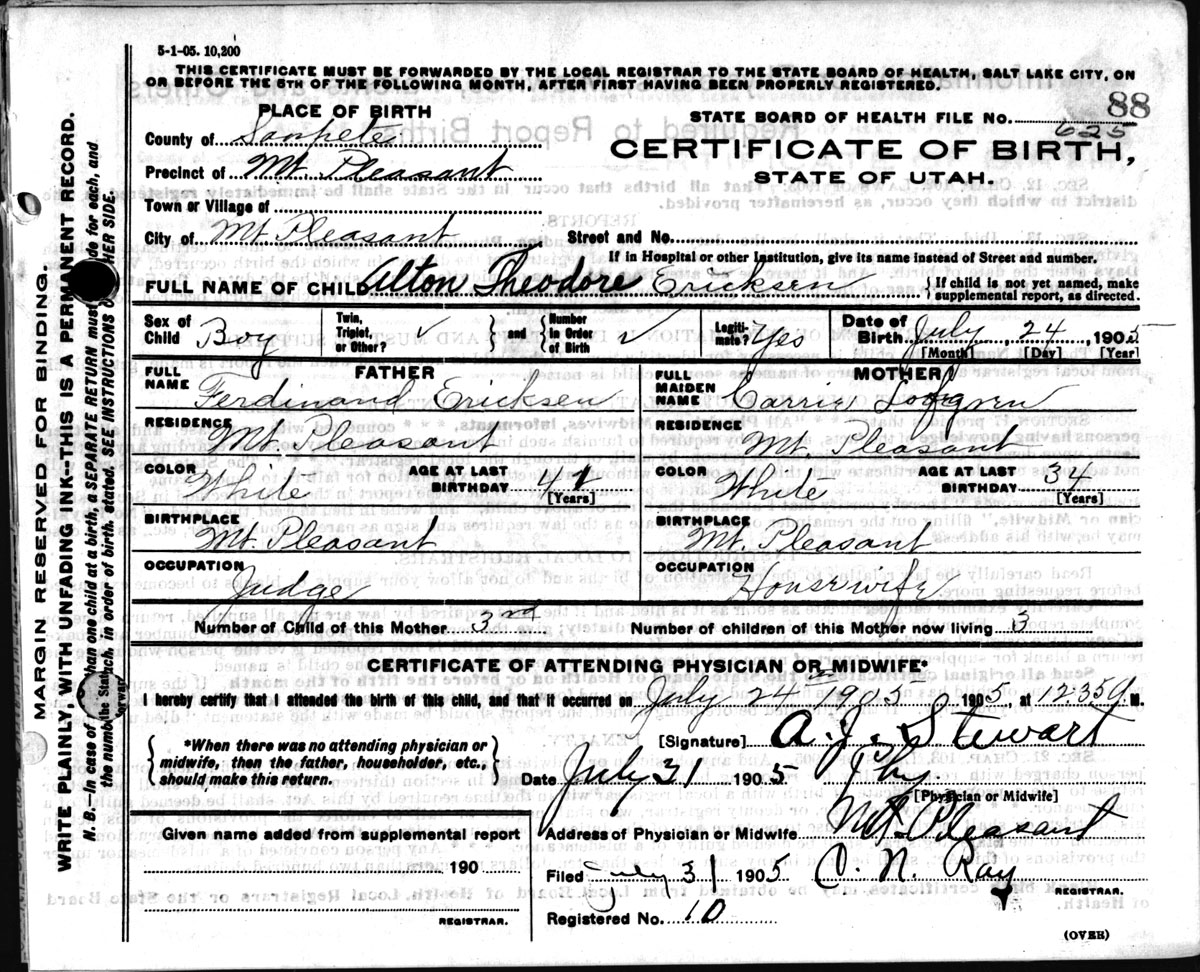 5-1-05. 10,200
THIS CERTIFICATE MUST BE FORWARDED BY THE LOCAL REGISTRAR TO THE STATE BOARD OF HEALTH, SALT LAKE CITY, ON
OR BEFORE THE 5TH OF THE FOLLOWING MONTH, AFTER FIRST HAVING BEEN PROPERLY REGISTERED.
88
PLACE OF BIRTH
STATE BOARD OF HEALTH FILE NO. 625
County of Sanpete
CERTIFICATE OF BIRTH,
Precinct of Mt. Pleasant
STATE OF UTAH.
Town or Village of
City of Mt Pleasant Street and No.
If in Hospital or other Institution, give its name instead of Street and number.
FULL NAME OF CHILD Alton Theodore Ericksen {If child is not yet named, make
supplemental report, as directed.
Sex of Child Boy Twin, Triplet, or Other? ✓ } and { Number in Order of Birth ✓ Legiti-mate? Yes Date of Birth July 24, 1905
[Month] [Day] [Year]
FATHER
FULL NAME Ferdinand Ericksen
RESIDENCE Mt. Pleasant
COLOR White AGE AT LAST BIRTHDAY
[Years]
BIRTHPLACE Mt. Pleasant
OCCUPATION Judge
MOTHER
FULL MAIDEN NAME Carrie
RESIDENCE Mt. Pleasant
COLOR White AGE AT LAST BIRTHDAY 34
[Years]
BIRTHPLACE Mt. Pleasant
OCCUPATION Housewife
Number of Child of this Mother 3rd Number of children of this Mother now living 3
CERTIFICATE OF ATTENDING PHYSICIAN OR MIDWIFE*
I hereby certify that I attended the birth of this child, and that it occurred on July 24th 1905 1905, at 12.35 M.
{*When there was no attending physician or
midwife, then the father, householder, etc.,
should make this return.}
[Signature] A. J. Stewart
Date July 31 1905 Phy.
[Physician or Midwife]
Given name added from supplemental report
190
REGISTRAR.
Address of Physician or Midwife Mt. Pleasant
Filed July 31 1905 C. N. Ray
REGISTRAR.
Registered No. 10
(OVER)
MARGIN RESERVED FOR BINDING.
WRITE PLAINLY WITH UNFADING INK--THIS IS A PERMANENT RECORD.
N. B.--In case of than one child at a birth, a SEPARATE RETURN must de for each, and
the number each, in order of birth, stated. SEE INSTRUCTIONS HER SIDE.